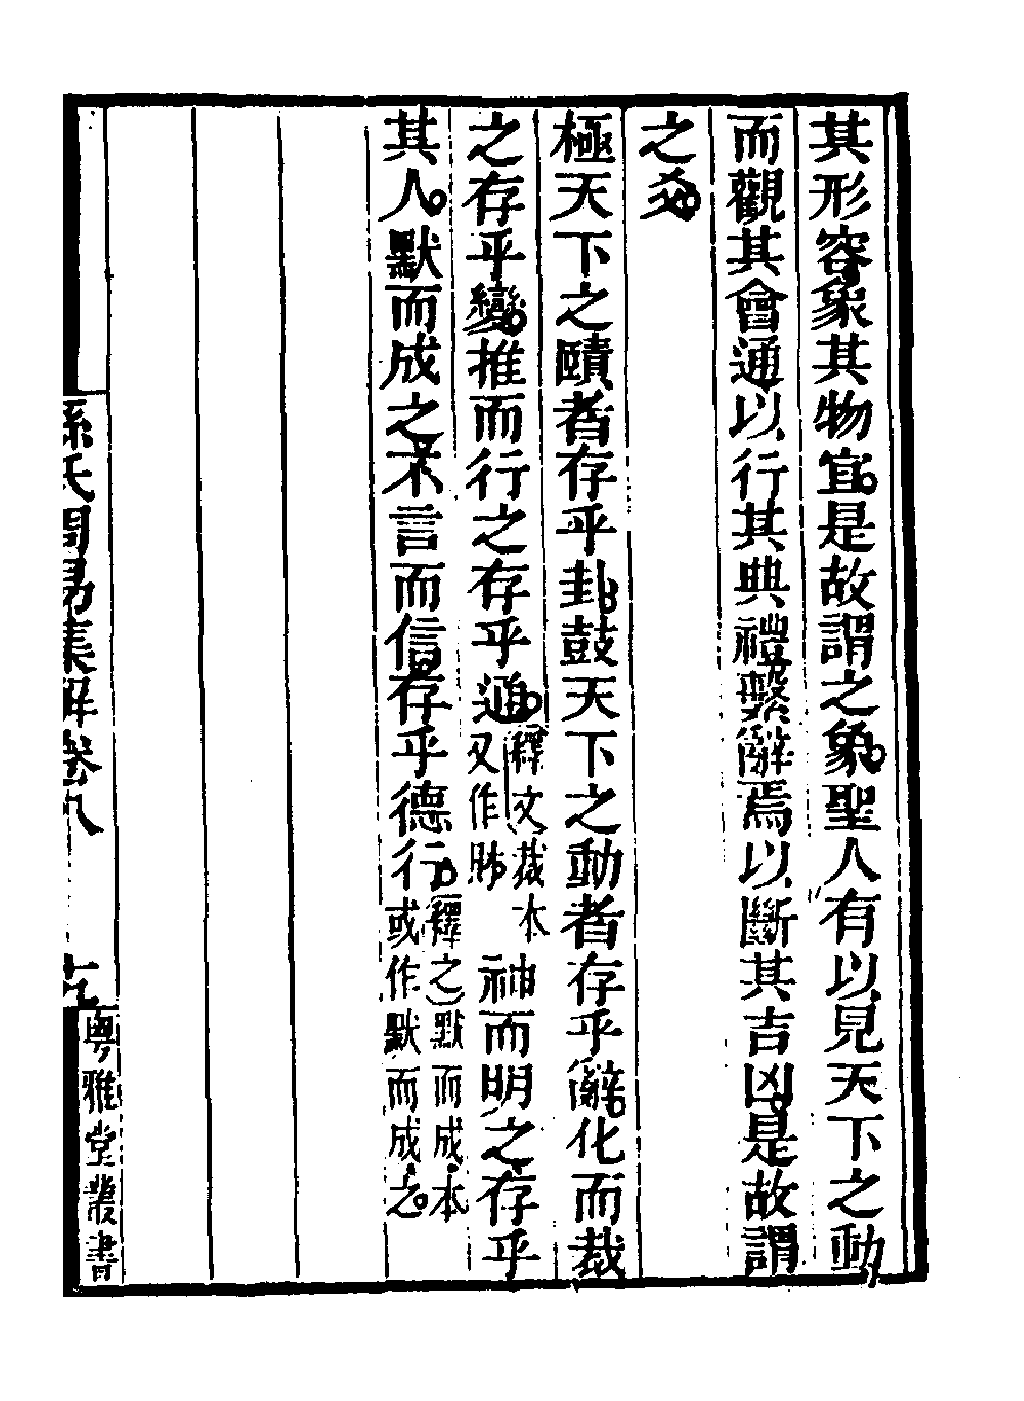 其形容象其物宜是故謂之象聖人有以見天下之動
而觀其會通以行其典禮繫辭焉以斷其吉凶是故謂
之爻
極天下之賾者存乎卦鼓天下之動者存乎辭化而裁
之存乎變推而行之存乎通釋文裁本又作財神而明之存乎
其人默而成之不言而信存乎德行釋之默而成本或作默而成之
孫氏周易集解卷八
粵雅堂叢書